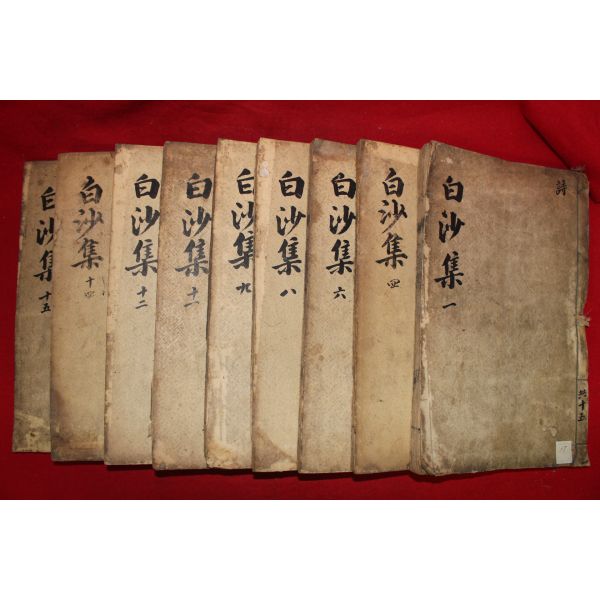 詩
白沙集 一
共十五
17
白沙集 四
白沙集 六
白沙集 八
白沙集 九
白沙集 十一
白沙集 十二
白沙集 十四
白沙集 十五